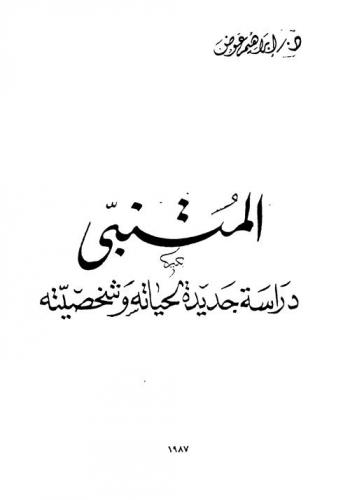 د. إبراهيم عوض
المتنبّي
دراسة جديدة لحياته وشخصيّته
١٩٨٧